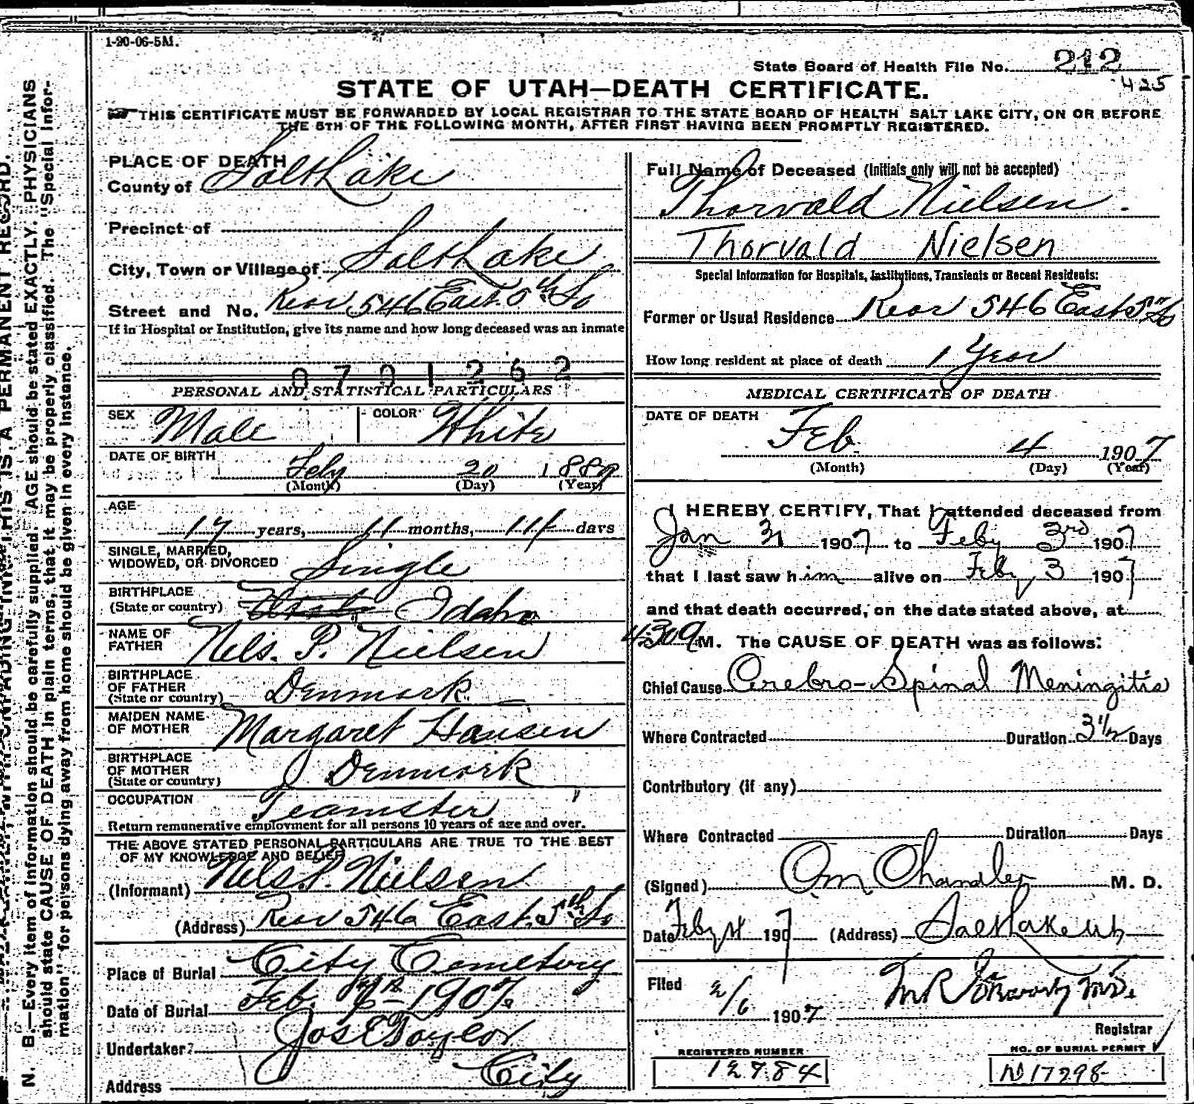 1-20-06-5M.
State Board of Health File No. 212
425
STATE OF UTAH—DEATH CERTIFICATE.
THIS CERTIFICATE MUST BE FORWARDED BY LOCAL REGISTRAR TO THE STATE BOARD OF HEALTH SALT LAKE CITY, ON OR BEFORE
THE 5TH OF THE FOLLOWING MONTH, AFTER FIRST HAVING BEEN PROMPTLY REGISTERED.
PLACE OF DEATH
County of Salt Lake
Precinct of
City, Town or Village of Salt Lake
Street and No. Rear 546 East 5th So
If in Hospital or Institution, give its name and how long deceased was an inmate
0701262
PERSONAL AND STATISTICAL PARTICULARS
SEX Male COLOR White
DATE OF BIRTH Feby 20 1889
(Month) (Day) (Year)
AGE
17 years, 11 months, 14 days
SINGLE, MARRIED,
WIDOWED, OR DIVORCED Single
BIRTHPLACE
(State or country) Idaho
NAME OF
FATHER Nels. P. Nielsen
BIRTHPLACE
OF FATHER
(State or country) Denmark
MAIDEN NAME
OF MOTHER Margaret Hansen
BIRTHPLACE
OF MOTHER
(State or country) Denmark
OCCUPATION Teamster
Return remunerative employment for all persons 10 years of age and over.
THE ABOVE STATED PERSONAL PARTICULARS ARE TRUE TO THE BEST
OF MY KNOWLEDGE AND BELIEF
(Informant) Nels. P. Nielsen
(Address) Rear 546 East. 5th So
Place of Burial City Cemetery
Date of Burial Feb. 6th 1907.
Undertaker Jos E Taylor
Address City
Full Name of Deceased (Initials only will not be accepted)
Thorvald Nielsen.
Thorvald Nielsen
Special Information for Hospitals, Institutions, Transients or Recent Residents:
Former or Usual Residence Rear 546 East 5th So
How long resident at place of death 1 Year
MEDICAL CERTIFICATE OF DEATH
DATE OF DEATH
Feb 4 1907
(Month) (Day) (Year)
I HEREBY CERTIFY, That I attended deceased from
Jan 31 1907 to Feby 3rd 1907
that I last saw him alive on Feby 3 1907
and that death occurred, on the date stated above, at
430 a M. The CAUSE OF DEATH was as follows:
Chief Cause Cerebro-Spinal Meningitis
Where Contracted Duration 3½ Days
Contributory (if any)
Where Contracted Duration Days
(Signed) Chandler M. D.
Date Feby 4 1907 (Address) Salt Lake Ut
Filed 2/6 1907
Registrar
REGISTERED NUMBER
12984
NO. OF BURIAL PERMIT
No 17298
N. B.—Every item of information should be carefully supplied. AGE should be stated EXACTLY. PHYSICIANS
should state CAUSE OF DEATH in plain terms, that it may be properly classified. The "Special Infor-
mation" for persons dying away from home should be given in every instance.